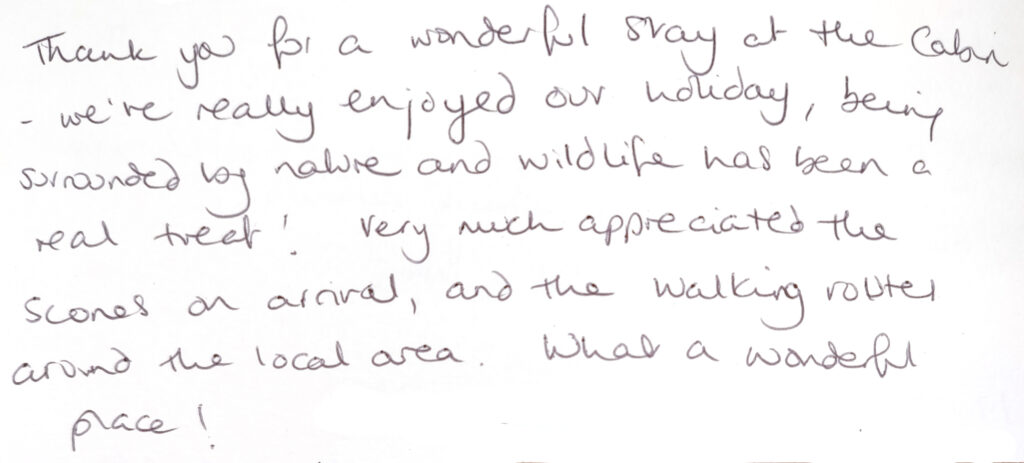 Thank you for a wonderful stay at the Cabin
- we're really enjoyed our holiday, being
surrounded by nature and wildlife has been a
real treat! Very much appreciated the
scones on arrival, and the walking routes
around the local area. What a wonderful
place!